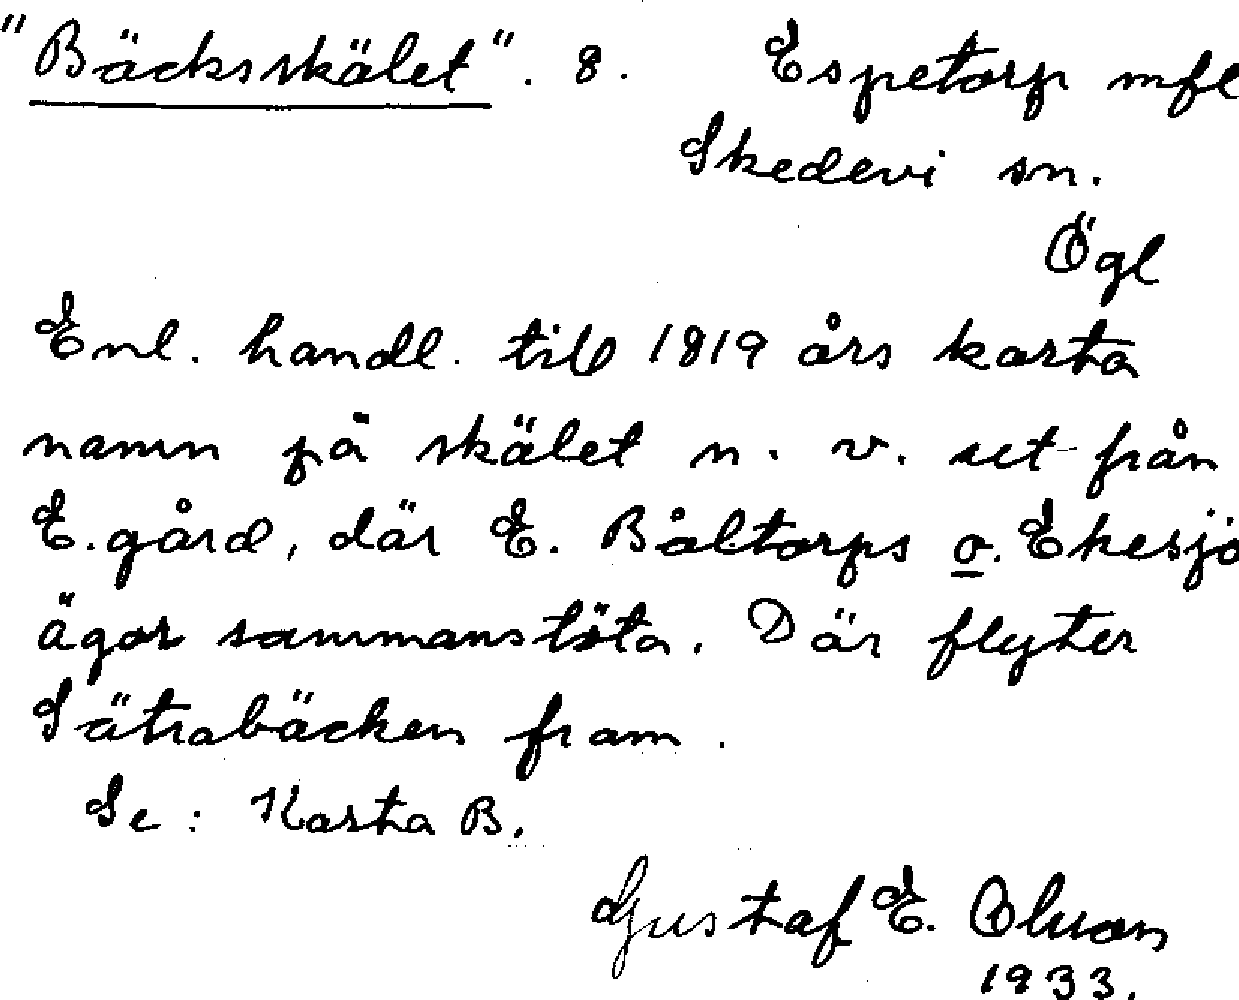 "Bäcksskälet". 8. Espetorp mfl
Skedevi sn.
Ögl
Enl. handl. till 1819 års karta
namn på skälet n. v. ut från
E.gård, där E. Båltorps o. Ekesjö
ägor sammanstöta. Där flyter
Sätrabäcken fram.
Se: Karta B.
Gustaf E. Olsson
1933.